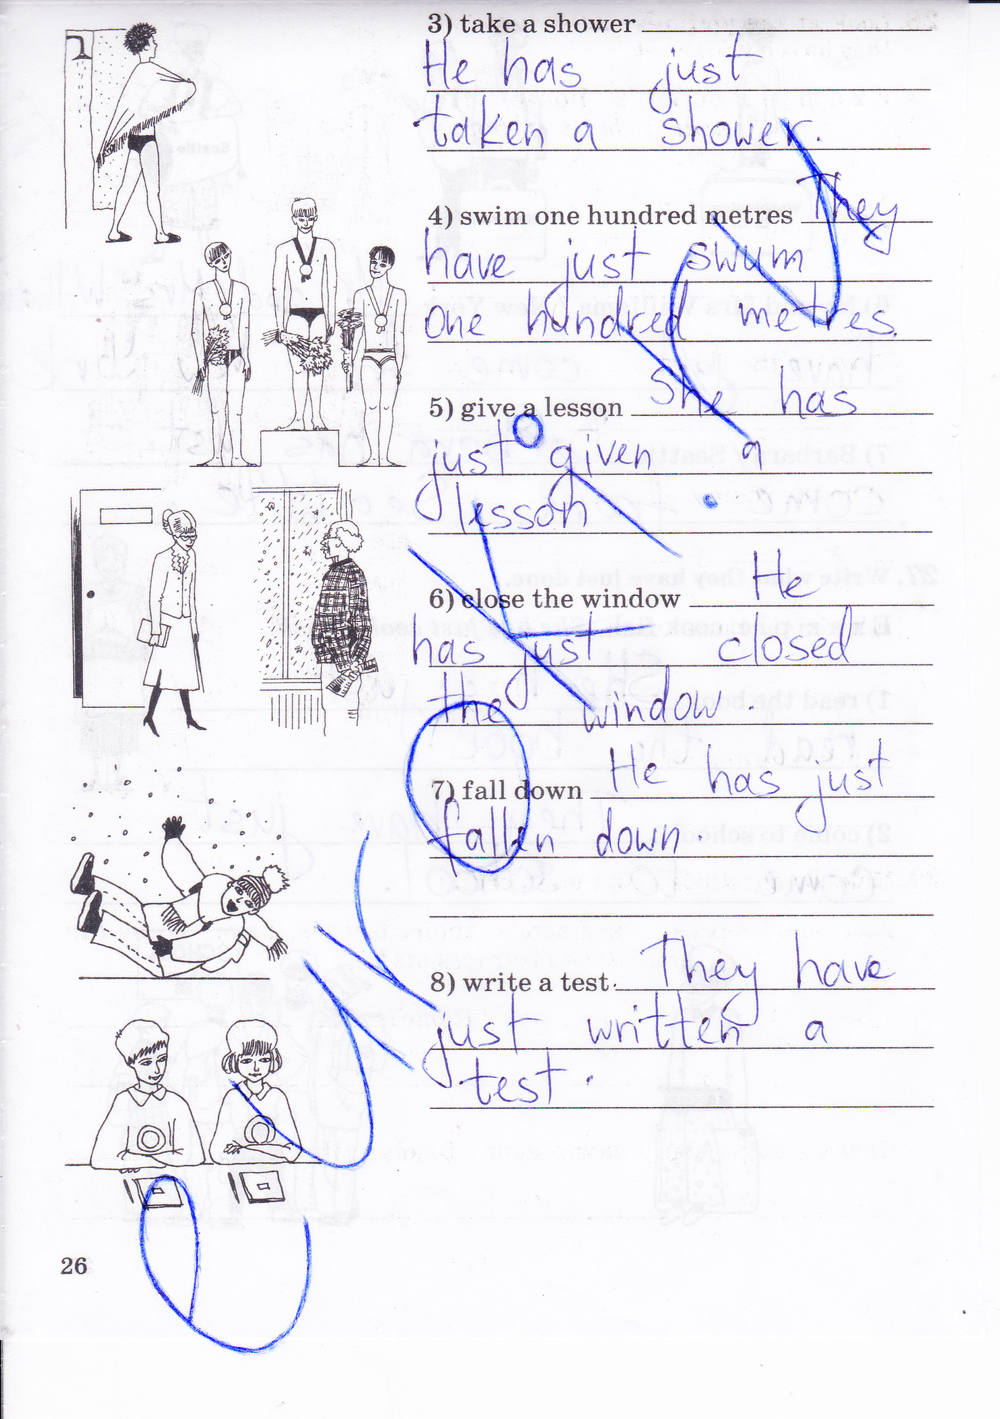 3) take a shower
He has just
taken a shower.
4) swim one hundred metres They
have just swum
one hundred metres.
5) give a lesson She has
just given a
lesson
6) close the window He
has just closed
the window.
7) fall down He has just
fallen down.
8) write a test. They have
just written a
test.
26